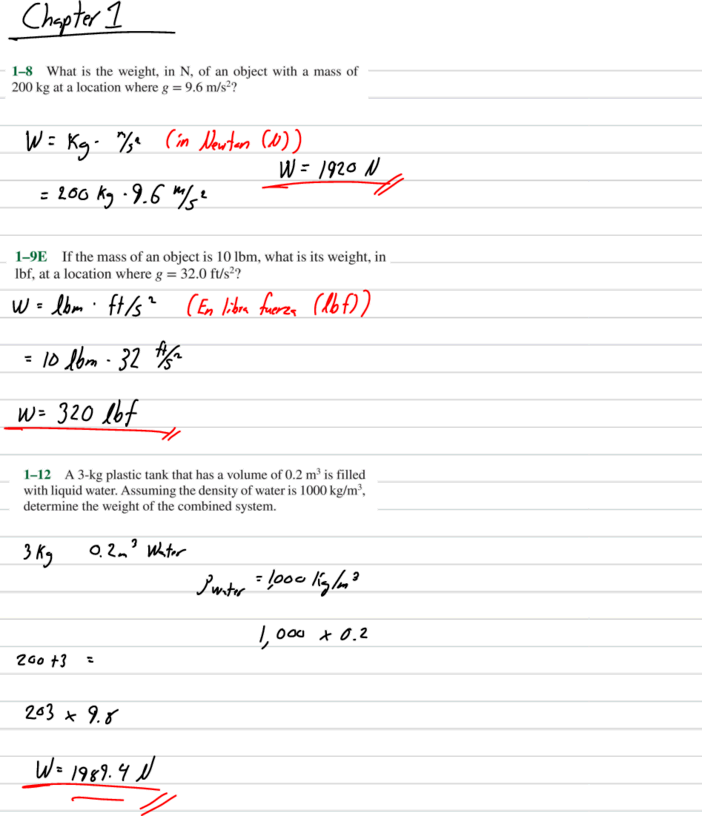 Chapter 1
1–8 What is the weight, in N, of an object with a mass of
200 kg at a location where g = 9.6 m/s²?
W = Kg · m/s² (in Newton (N))
W = 1920 N
= 200 Kg · 9.6 m/s²
1–9E If the mass of an object is 10 lbm, what is its weight, in
lbf, at a location where g = 32.0 ft/s²?
W = lbm · ft/s² (En libra fuerza (lbf))
= 10 lbm · 32 ft/s²
W = 320 lbf
1–12 A 3-kg plastic tank that has a volume of 0.2 m³ is filled
with liquid water. Assuming the density of water is 1000 kg/m³,
determine the weight of the combined system.
3 Kg 0.2m³ Water
ρwater = 1,000 Kg/m³
1,000 x 0.2
200 + 3 =
203 x 9.8
W = 1989.4 N